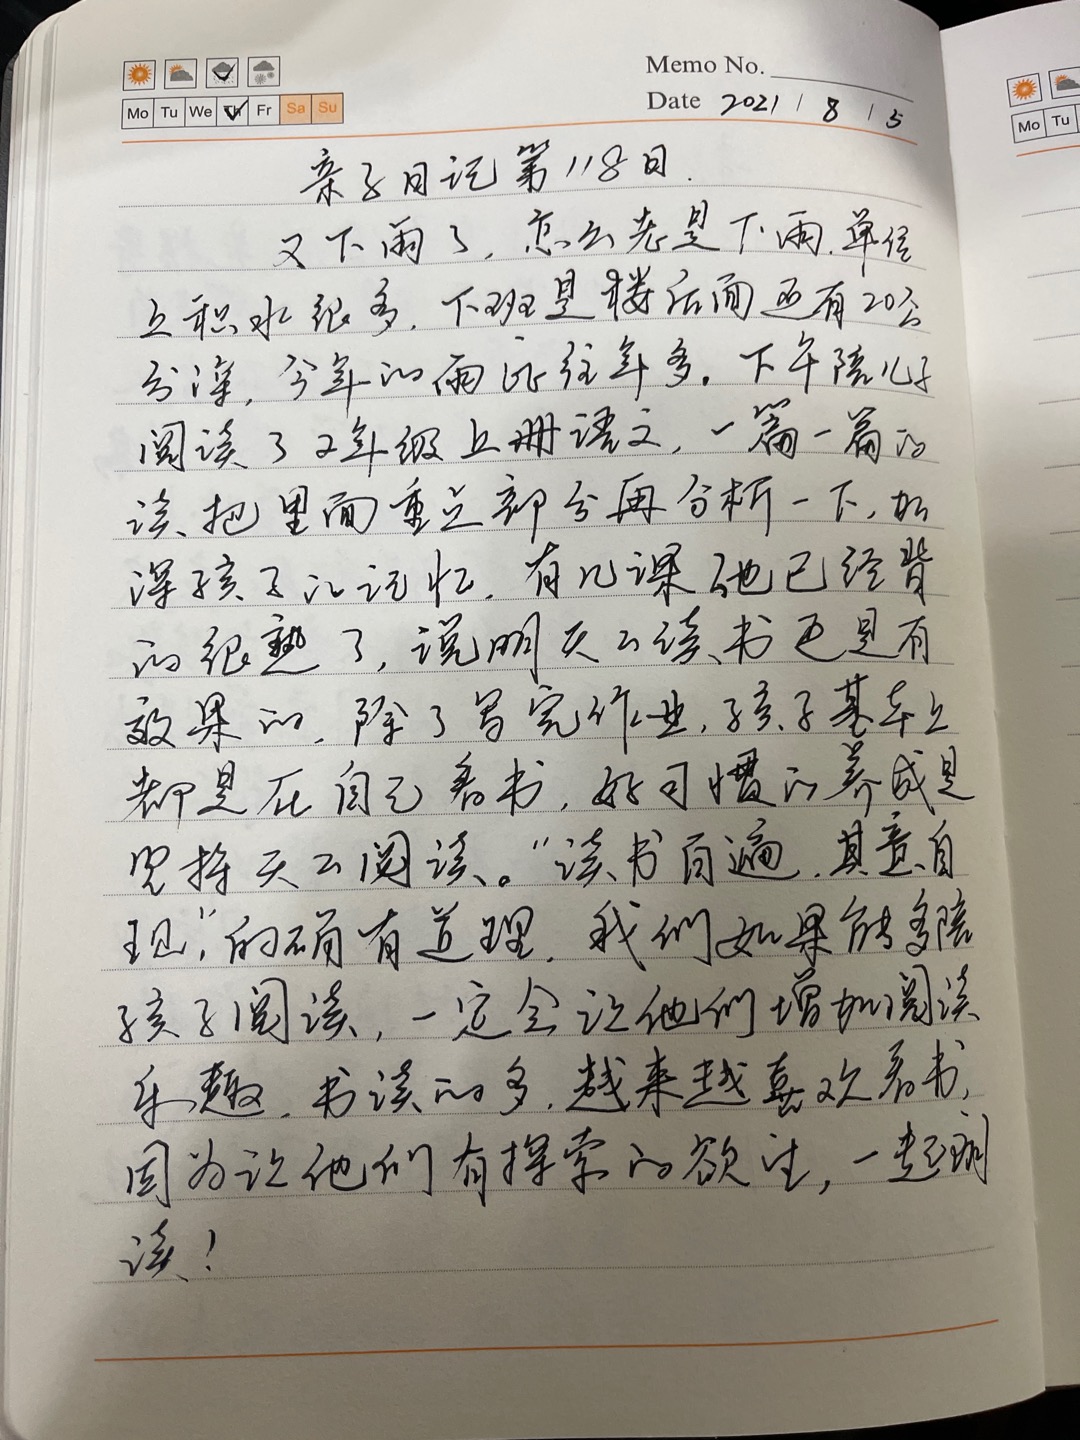 Memo No.
Mo Tu We Th Fr Sa Su
Date 2021 / 8 / 5
亲子日记第118日.
又下雨了,怎么老是下雨.单位
上积水很多.下班是楼后面还有20公
分深,今年的雨比往年多。下午陪儿子
阅读了2年级上册语文,一篇一篇的
读、把里面重点部分再分析一下,加
深孩子的记忆.有几课他已经背
的很熟了,说明天天读书还是有
效果的.除了写完作业,孩子基本上
都是在自己看书,好习惯的养成是
坚持天天阅读。“读书百遍.其意自
现”,的确有道理.我们如果能多陪
孩子阅读,一定会让他们增加阅读
乐趣.书读的多.越来越喜欢看书,
因为让他们有探索的欲望,一起阅
读!
Mo Tu